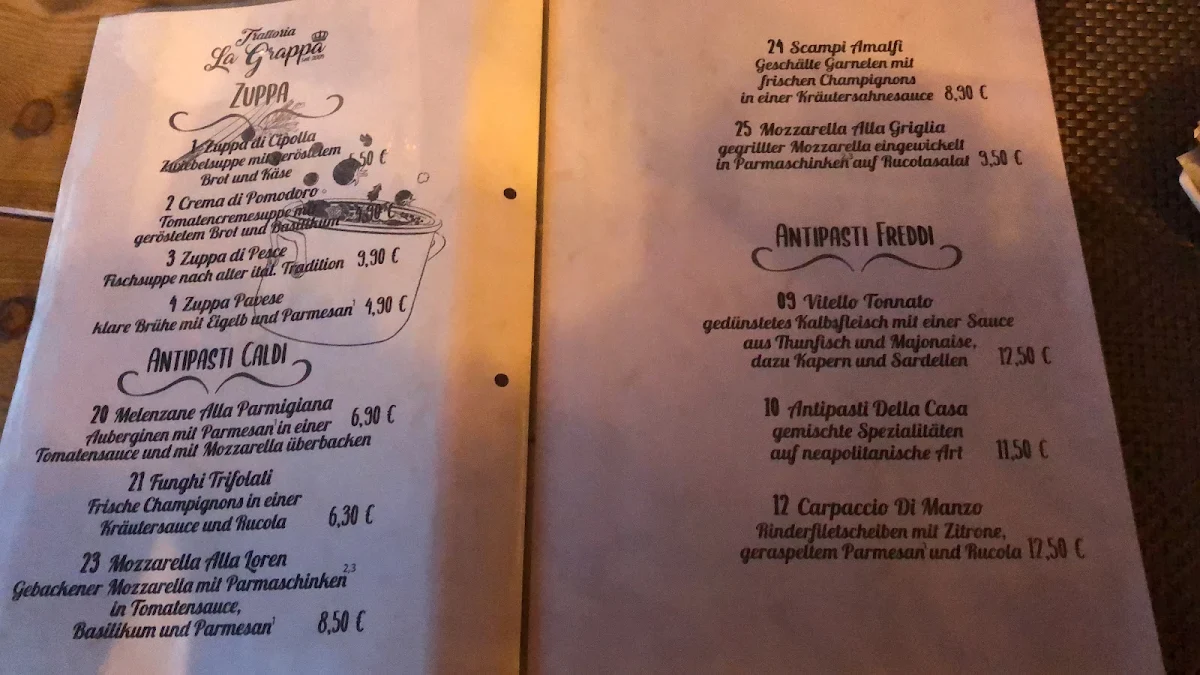 Trattoria
La Grappa
ZUPPA
1 Zuppa di Cipolla
Zwiebelsuppe mit geröstetem
Brot und Käse ,50 €
2 Crema di Pomodoro
Tomatencremesuppe mit
geröstetem Brot und Basilikum ,90 €
3 Zuppa di Pesce
Fischsuppe nach alter ital. Tradition 9,90 €
4 Zuppa Pavese
klare Brühe mit Eigelb und Parmesan¹ 4,90 €
ANTIPASTI CALDI
20 Melenzane Alla Parmigiana
Auberginen mit Parmesan¹ in einer 6,90 €
Tomatensauce und mit Mozzarella überbacken
21 Funghi Trifolati
Frische Champignons in einer
Kräutersauce und Rucola 6,30 €
23 Mozzarella Alla Loren
Gebackener Mozzarella mit Parmaschinken 2,3
in Tomatensauce,
Basilikum und Parmesan¹ 8,50 €
24 Scampi Amalfi
Geschälte Garnelen mit
frischen Champignons
in einer Kräutersahnesauce 8,90 €
25 Mozzarella Alla Griglia
gegrillter Mozzarella eingewickelt
in Parmaschinken auf Rucolasalat 9,50 €
ANTIPASTI FREDDI
09 Vitello Tonnato
gedünstetes Kalbsfleisch mit einer Sauce
aus Thunfisch und Majonaise,
dazu Kapern und Sardellen 12,50 €
10 Antipasti Della Casa
gemischte Spezialitäten
auf neapolitanische Art 11,50 €
12 Carpaccio Di Manzo
Rinderfiletscheiben mit Zitrone,
geraspeltem Parmesan¹ und Rucola 12,50 €